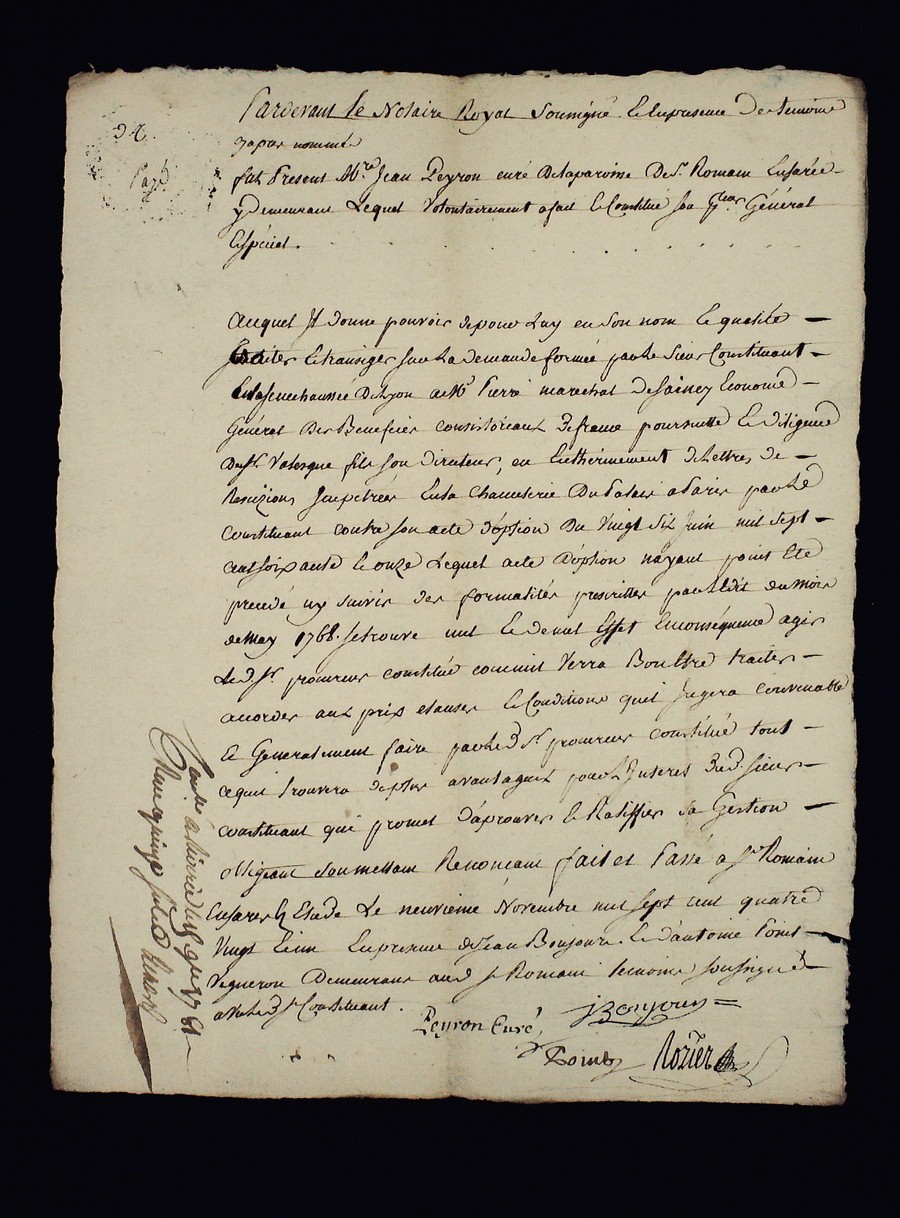 Pardevant le Notaire Royal Soussigné Et En presence De temoins
y apres nommés
fut Present Mre Jean Peyron curé De la paroisse De St Romain En Jarée
y demeurant Lequel Volontairement a fait Et Constitué son Général
Et Special.
Auquel Il donne pouvoir de pour Luy en son nom Et qualité
traiter Et transiger sur La demande formée par Le Sieur Constituant
En La senechaussée De Lyon a Mr Pierre marechal De Sainey Econome
Général Des Benefices Consistoriaux De france poursuitte Et diligence
Du Sr Valesque fils son directeur, en Enthérinement de Lettres de
Rescizion Impetrées En La Chancelerie Du Palais a Paris par Le
Constituant contre son acte d'option Du Vingt Six Juin mil sept
cent soixante Et onze Lequel acte D'option n'ayant point Eté
precedé ny suivis des formalités prescrittes par L'Edit du mois
de May 1768. se trouve nul Et de nul Effet En conséquence agir
Le d. Sr. procureur constitué comme Verra Bon Etre traiter
accorder aux prix clauses Et Conditions quil Jugera convenable
Et Generalement faire par Le d Sr procureur constitué tout
ce quil trouvera de plus avantageux pour L'Interes Dud. Sieur
constituant qui promet D'aprouver Et Ratiffier Sa Gestion
obligeant Soumettant Renoncant fait et Passé a St Romain
En Jarez Etude Le neuvieme Novembre mil sept cent quatre
Vingt Et un En presence de Jean Bonjour Et d'antoine Point
Vigneron Demeurans aud St Romain temoins soussignés
avec Le d Sr Constituant.
Peyron Curé, J Bonjour
Point Rozier